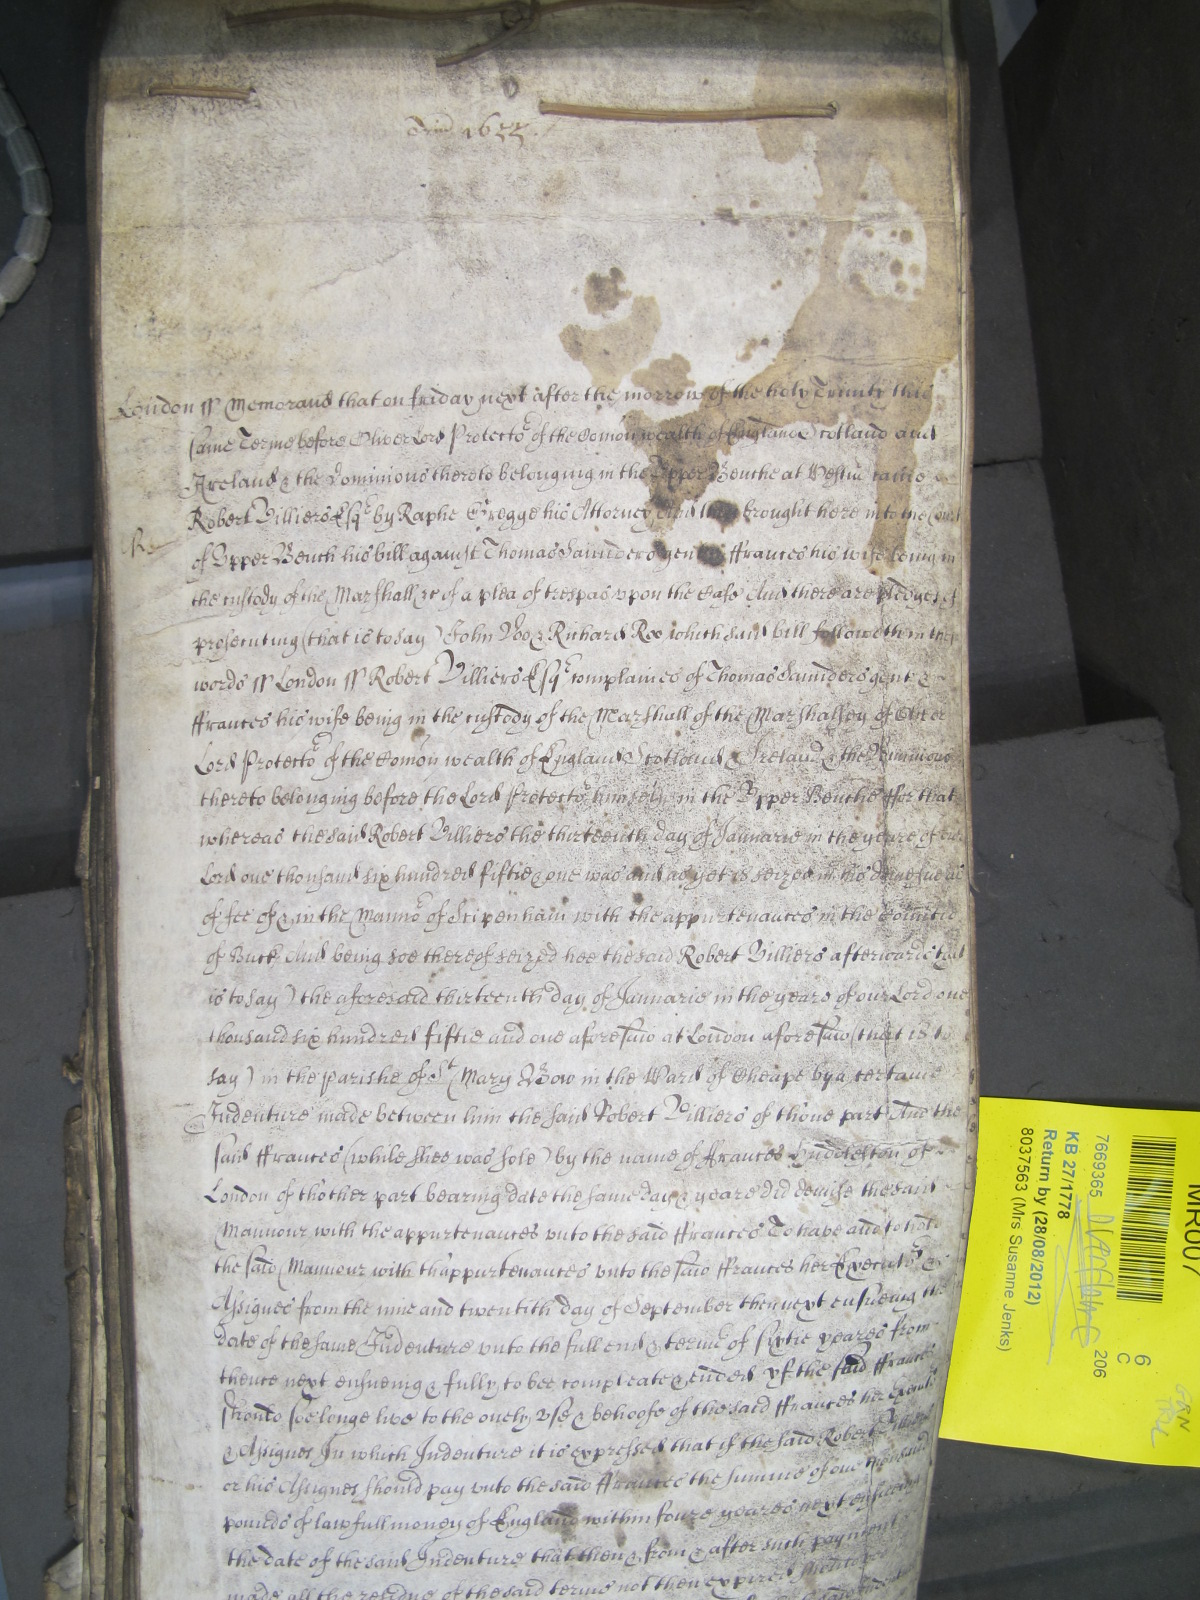 Trin 1655.
London ss Memorand that on friday next after the morrow of the holy Trinity this
same Terme before Oliver Lord Protector of the Comon wealth of England Scotland and
Ireland & the Dominions thereto belonging in the Upper Benche at Westm came
Robert Villiers Esqr by Raphe Gregge his Attorney And then brought here into the Court
of Upper Bench his bill against Thomas Saunders gent & ffrances his wife being in
the custody of the Marshall &c of a plea of trespas upon the Case And there are pledges of
prosecuting (that is to say) John Doo & Richard Roo which said bill followeth in these
words ss London ss Robert Villiers Esqr complaines of Thomas Saunders gent &
ffrances his wife being in the custody of the Marshall of the Marshalsey of Oliver
Lord Protector of the Comon wealth of England Scotland & Ireland & the Dominions
thereto belonging before the Lord Protector himself in the Upper Benche ffor that
whereas the said Robert Villiers the thirteenth day of Januarie in the yeare of our
Lord one thousand six hundred fiftie & one was and as yet is seized in his demesne as
of fee of & in the Mannor of Stipenham with the appurtenances in the Countie
of Buck And being soe thereof seized hee the said Robert Villiers afterwards (that
is to say) the aforesaid thirteenth day of Januarie in the yeare of our Lord one
thousand six hundred fiftie and one aforesaid at London aforesaid (that is to
say) in the parishe of St Mary Bow in the Ward of Cheape by a certaine
Indenture made between him the said Robert Villiers of thone part And the
said ffrances (while shee was sole) by the name of ffrances Huddleston of
London of thother part bearing date the same day & yeare did demise the said
Mannour with the appurtenances unto the said ffrances To have and to hold
the said Mannour with thappurtenances unto the said ffrances her Executors &
Assignes from the nine and twentith day of September then next ensueing the
date of the same Indenture unto the full end & terme of sixtie yeares from
thence next ensueing & fully to bee compleate & ended yf the said ffrances
should soe longe live to the onely use & behoofe of the said ffrances her Executors
& Assignes In which Indenture it is expressed that if the said Robert Villiers
or his Assignes should pay unto the said ffrances the summe of one thousand
pounds of lawfull money of England within foure yeares next ensueing
the date of the said Indenture that then & from & after such payment
made all the residue of the said terme not then expired
MR007
6
C
7669365
206
KB 27/1778
Return by (28/08/2012)
8037563 (Mrs Susanne Jenks)